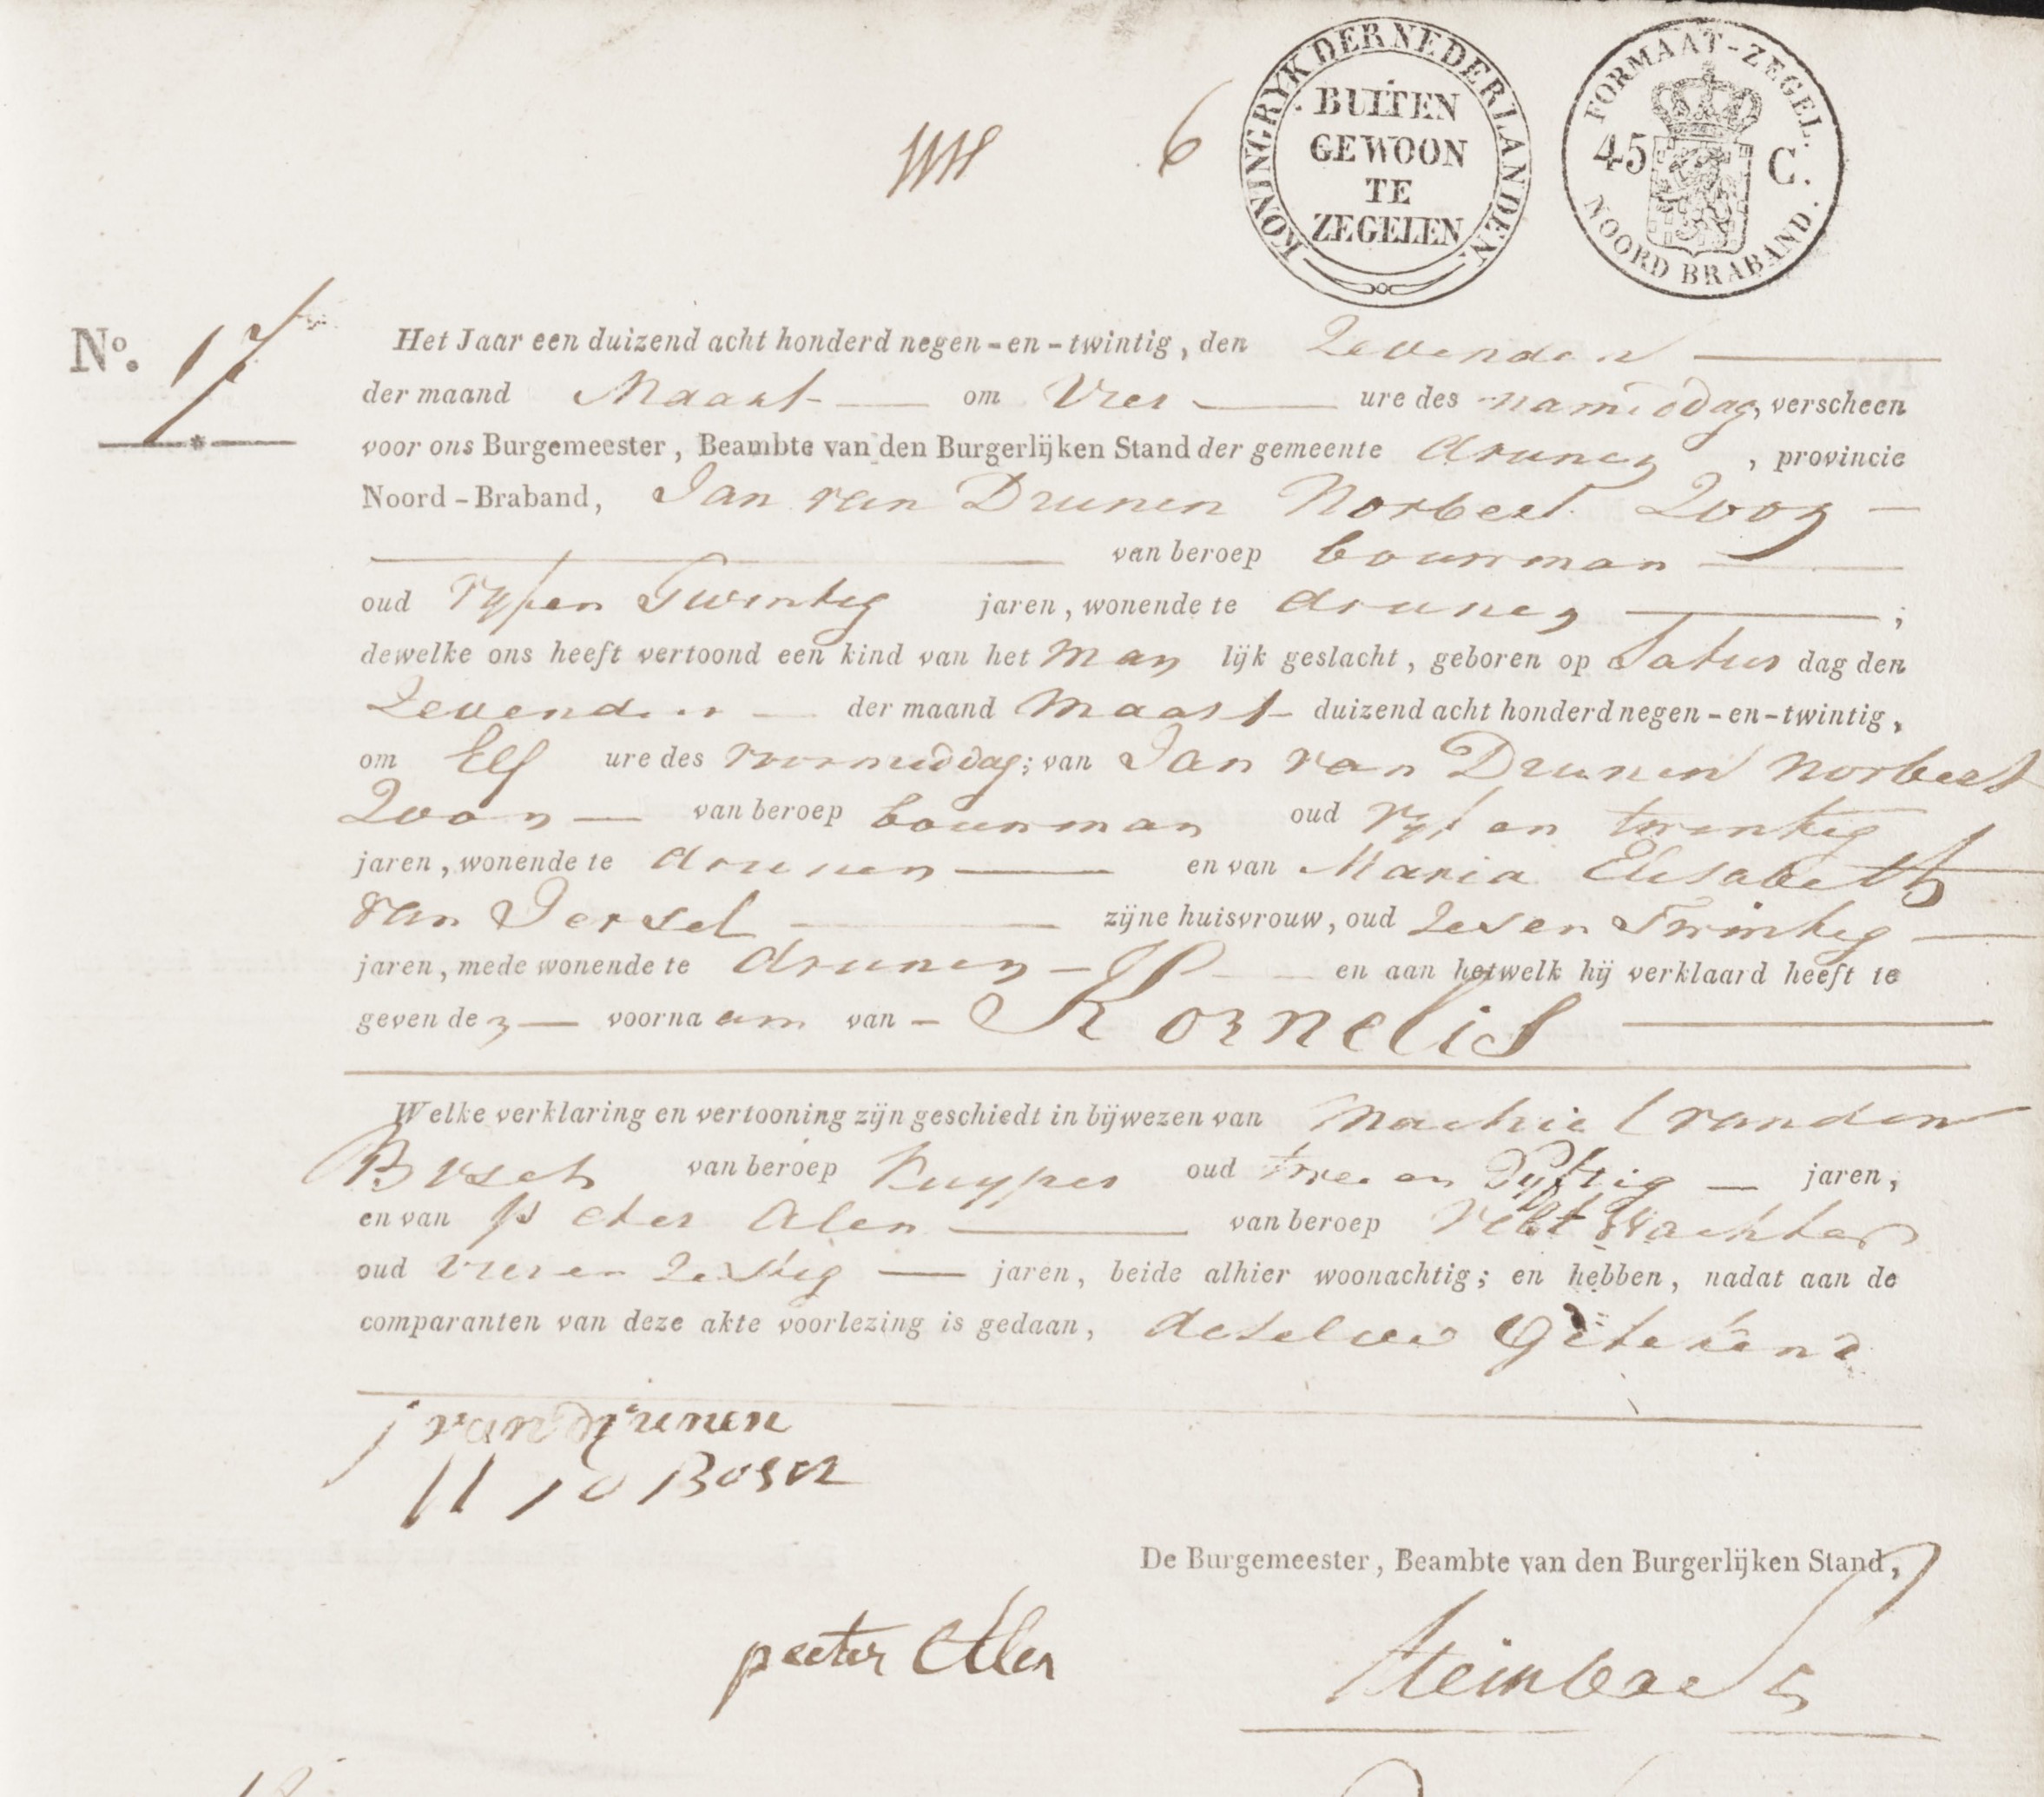 KONINGRYK DER NEDERLANDEN.
BUITEN
GEWOON
TE
ZEGELEN
FORMAAT-ZEGEL.
45 C.
NOORD BRABAND.
6
No. 17
Het Jaar een duizend acht honderd negen-en-twintig, den Zevenden
der maand Maart om Vier ure des namiddag, verscheen
voor ons Burgemeester, Beambte van den Burgerlijken Stand der gemeente drunen, provincie
Noord-Braband, Jan van Drunen Norbert Zoon
van beroep bouwman
oud vyf en Twintig jaren, wonende te drunen;
dewelke ons heeft vertoond een kind van het Man lijk geslacht, geboren op Saturs dag den
Zevenden der maand Maart duizend acht honderd negen-en-twintig,
om Elf ure des voormiddag; van Jan van Drunen Norbert
Zoon van beroep bouwman oud vyf en twintig
jaren, wonende te drunen en van Maria Elisabeth
van Iersel zijne huisvrouw, oud Zes en Twintig
jaren, mede wonende te drunen en aan hetwelk hij verklaard heeft te
geven den voornaam van Kornelis
Welke verklaring en vertooning zijn geschiedt in bijwezen van Machiel van den
Bosch van beroep Kuyper oud twee en Vyftig jaren,
en van Peter Alen van beroep Veltwachter
oud Vier en Zestig jaren, beide alhier woonachtig; en hebben, nadat aan de
comparanten van deze akte voorlezing is gedaan, deselve Getekend
j van drunen
Bosch
De Burgemeester, Beambte van den Burgerlijken Stand,
peeter Alen